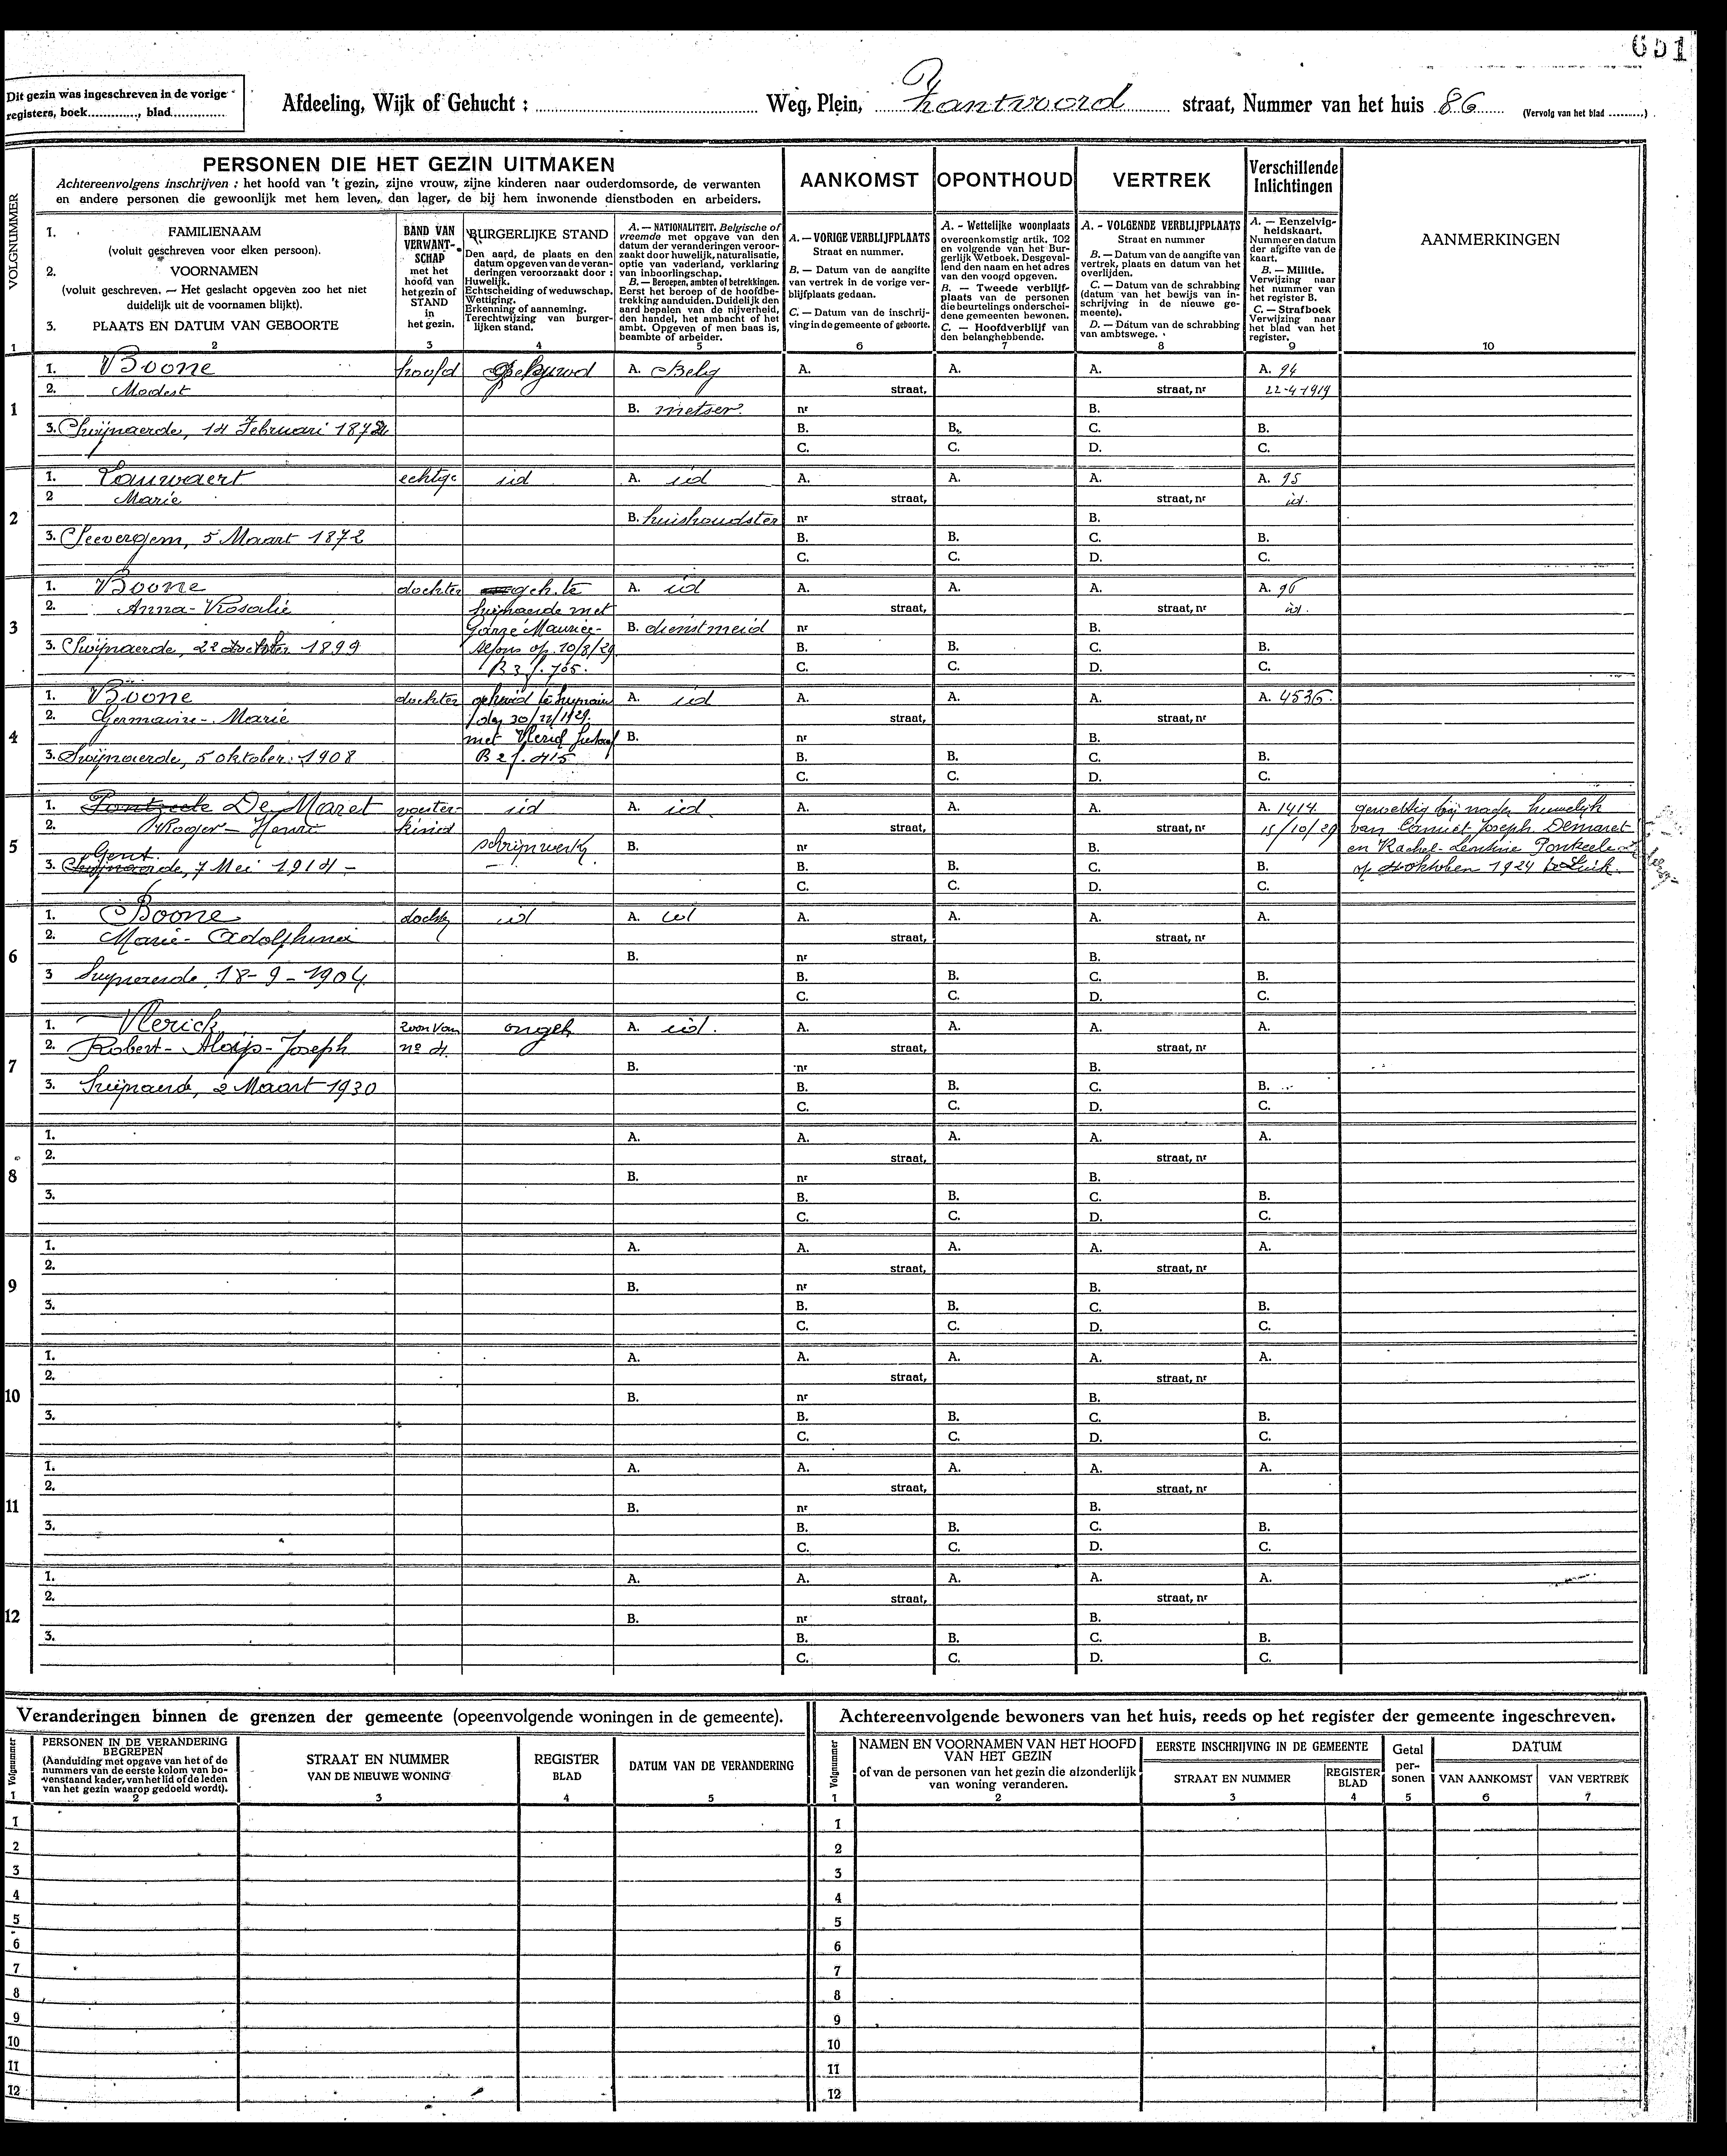 651
Dit gezin was ingeschreven in de vorige
registers, boek............., blad..............
Afdeeling, Wijk of Gehucht : ........................................ Weg, Plein, Zantvoord straat, Nummer van het huis 86 (Vervolg van het blad .........)
VOLGNUMMER
PERSONEN DIE HET GEZIN UITMAKEN
Achtereenvolgens inschrijven : het hoofd van 't gezin, zijne vrouw, zijne kinderen naar ouderdomsorde, de verwanten
en andere personen die gewoonlijk met hem leven, dan lager, de bij hem inwonende dienstboden en arbeiders.
AANKOMST
OPONTHOUD
VERTREK
Verschillende
Inlichtingen
1. FAMILIENAAM
(voluit geschreven voor elken persoon).
2. VOORNAMEN
(voluit geschreven. — Het geslacht opgeven zoo het niet
duidelijk uit de voornamen blijkt).
3. PLAATS EN DATUM VAN GEBOORTE
BAND VAN
VERWANT-
SCHAP
met het
hoofd van
het gezin of
STAND
in
het gezin.
BURGERLIJKE STAND
Den aard, de plaats en den
datum opgeven van de veran-
deringen veroorzaakt door :
Huwelijk.
Echtscheiding of weduwschap.
Wettiging.
Erkenning of aanneming.
Terechtwijzing van burger-
lijken stand.
A. — NATIONALITEIT. Belgische of
vreemde met opgave van den
datum der veranderingen veroor-
zaakt door huwelijk, naturalisatie,
optie van vaderland, verklaring
van inboorlingschap.
B. — Beroepen, ambten of betrekkingen.
Eerst het beroep of de hoofdbe-
trekking aanduiden. Duidelijk den
aard bepalen van de nijverheid,
den handel, het ambacht of het
ambt. Opgeven of men baas is,
beambte of arbeider.
A. — VORIGE VERBLIJFPLAATS
Straat en nummer.
B. — Datum van de aangifte
van vertrek in de vorige ver-
blijfplaats gedaan.
C. — Datum van de inschrij-
ving in de gemeente of geboorte.
A. - Wettelijke woonplaats
overeenkomstig artik. 102
en volgende van het Bur-
gerlijk Wetboek. Desgeval-
lend den naam en het adres
van den voogd opgeven.
B. — Tweede verblijf-
plaats van de personen
die beurtelings onderschei-
dene gemeenten bewonen.
C. — Hoofdverblijf van
den belanghebbende.
A. - VOLGENDE VERBLIJFPLAATS
Straat en nummer
B. — Datum van de aangifte van
vertrek, plaats en datum van het
overlijden.
C. — Datum van de schrabbing
(datum van het bewijs van in-
schrijving in de nieuwe ge-
meente).
D. — Datum van de schrabbing
van ambtswege.
A. — Eenzelvig-
heidskaart.
Nummer en datum
der afgifte van de
kaart.
B. — Militie.
Verwijzing naar
het nummer van
het register B.
C. — Strafboek
Verwijzing naar
het blad van het
register.
AANMERKINGEN
1 2 3 4 5 6 7 8 9 10
1. Boone hoofd Gehuwd A. Belg A. A. A. A. 94
2. Modest straat, straat, nr 22-4-1919
1 B. metser. nr B.
3. Swijnaerde, 14 Februari 1872 B. B. C. B.
C. C. D. C.
1. Lauwaert echtge id A. id A. A. A. A. 95
2 Marie straat, straat, nr id.
2 B. huishoudster nr B.
3. Seevergem, 5 Maart 1872 B. B. C. B.
C. C. D. C.
1. Boone dochter geh. te A. id A. A. A. A. 96
2. Anna-Rosalie met straat, straat, nr id.
3 Maurice- B. dienstmeid nr B.
3. Swijnaerde, 22 1899 Alfons op 10/8/29 B. B. C. B.
B 3 f. 705. C. C. D. C.
1. Boone dochter gehuwd te A. id A. A. A. A. 4536.
2. Germaine-Marie den 30/11/1929. straat, straat, nr
4 met Vlerick B. nr B.
3. Swijnaerde, 5 oktober 1908 B 2 f. 415 B. B. C. B.
C. C. D. C.
1. De Maret id A. id. A. A. A. A. 1414. gewettig bij huwelijk
2. Roger-Henri kind straat, straat, nr 15/10/29 van Camiel Joseph Demaret
5 Gent. schrijnwerk. B. nr B. en Rachel-Leontine Ponteele
3. Swijnaerde, 7 Mei 1914 - B. B. C. B. op oktober 1924 te Luik.
C. C. D. C.
1. Boone docht id A. id A. A. A. A.
2. Marie-Adolphina straat, straat, nr
6 B. nr B.
3 18-9-1904 B. B. C. B.
C. C. D. C.
1. Vlerick zoon van ongeh A. id. A. A. A. A.
2. Robert-Aloijs-Joseph no 4. straat, straat, nr
7 B. nr B.
3. Swijnaerde, 2 Maart 1930 B. B. C. B.
C. C. D. C.
1. A. A. A. A. A.
2. straat, straat, nr
8 B. nr B.
3. B. B. C. B.
C. C. D. C.
1. A. A. A. A. A.
2. straat, straat, nr
9 B. nr B.
3. B. B. C. B.
C. C. D. C.
1. A. A. A. A. A.
2. straat, straat, nr
10 B. nr B.
3. B. B. C. B.
C. C. D. C.
1. A. A. A. A. A.
2. straat, straat, nr
11 B. nr B.
3. B. B. C. B.
C. C. D. C.
1. A. A. A. A. A.
2. straat, straat, nr
12 B. nr B.
3. B. B. C. B.
C. C. D. C.
Veranderingen binnen de grenzen der gemeente (opeenvolgende woningen in de gemeente).
Volgnummer
PERSONEN IN DE VERANDERING
BEGREPEN
(Aanduiding met opgave van het of de
nummers van de eerste kolom van bo-
venstaand kader, van het lid of de leden
van het gezin waarop gedoeld wordt).
STRAAT EN NUMMER
VAN DE NIEUWE WONING
REGISTER
BLAD
DATUM VAN DE VERANDERING
1 2 3 4 5
1
2
3
4
5
6
7
8
9
10
11
12
Achtereenvolgende bewoners van het huis, reeds op het register der gemeente ingeschreven.
Volgnummer
NAMEN EN VOORNAMEN VAN HET HOOFD
VAN HET GEZIN
of van de personen van het gezin die afzonderlijk
van woning veranderen.
EERSTE INSCHRIJVING IN DE GEMEENTE
STRAAT EN NUMMER
REGISTER
BLAD
Getal
per-
sonen
DATUM
VAN AANKOMST
VAN VERTREK
1 2 3 4 5 6 7
1
2
3
4
5
6
7
8
9
10
11
12